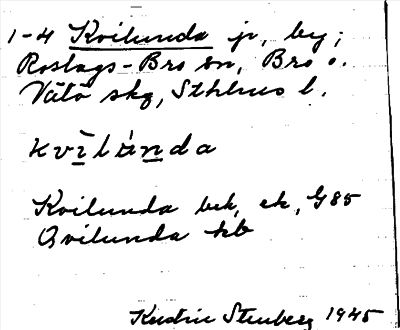 1-4 Kvilunda jr, by;
Roslags-Bro sn, Bro o.
Vätö skg, Sthlms l.
kvīlùnda
Kvilunda bek, ek, G85
Qvilunda kb
Kerstin Stenberg 1945